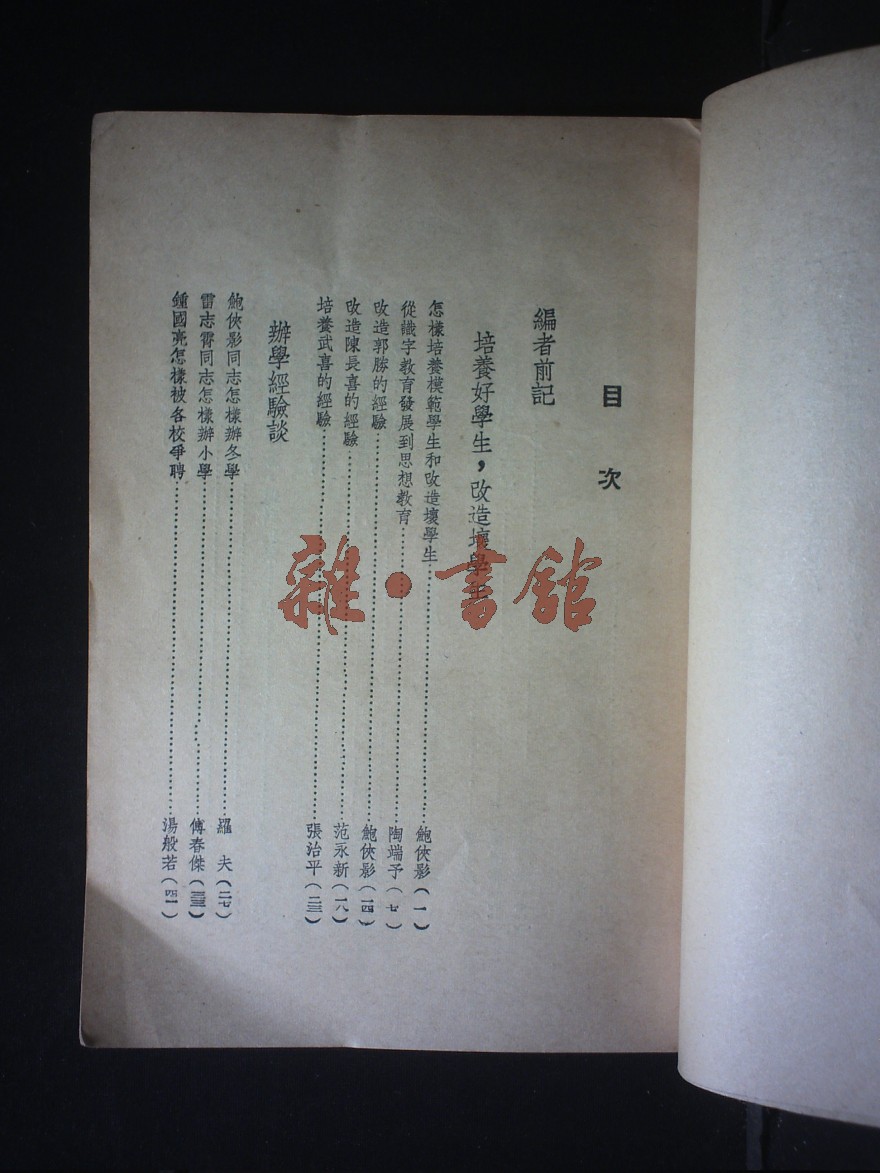 目 次
編者前記
培養好學生，改造壞學生
怎樣培養模範學生和改造壞學生⋯⋯鮑俠影（一）
從識字教育發展到思想教育⋯⋯陶端予（七）
改造郭勝的經驗⋯⋯鮑俠影（一四）
改造陳長喜的經驗⋯⋯范永新（一八）
培養武喜的經驗⋯⋯張治平（二三）
辦學經驗談
鮑俠影同志怎樣辦冬學⋯⋯羅 夫（二七）
雷志霄同志怎樣辦小學⋯⋯傅春傑（三三）
鍾國亮怎樣被各校爭聘⋯⋯湯般若（四一）
雜·書館